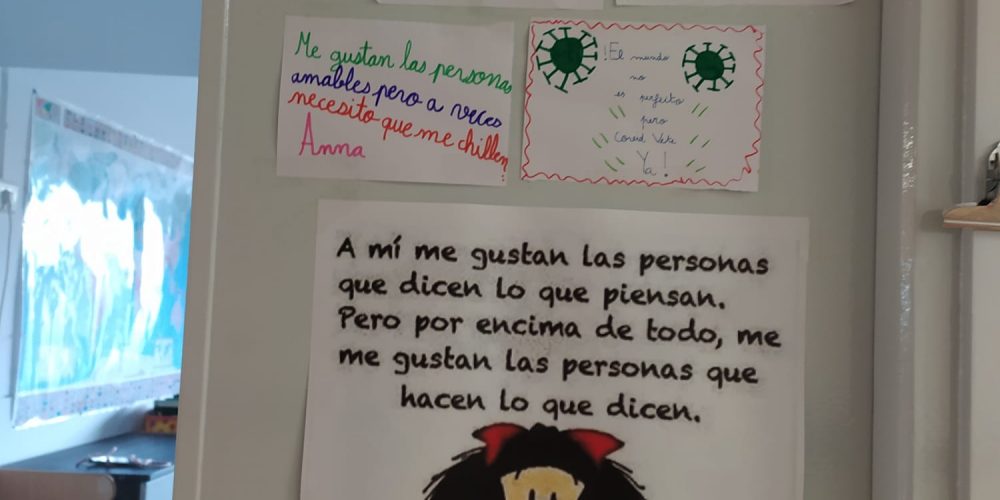 Me gustan las personas
amables pero a veces
necesito que me chillen
Anna
¡El mundo
no
es perfecto
pero
Covid Vete
Ya!
A mí me gustan las personas
que dicen lo que piensan.
Pero por encima de todo, me
me gustan las personas que
hacen lo que dicen.